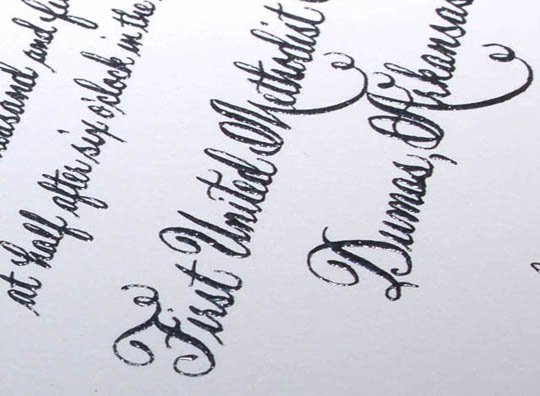 and
at half after six o'clock in the
First United Methodist
Dumas, Arkansas